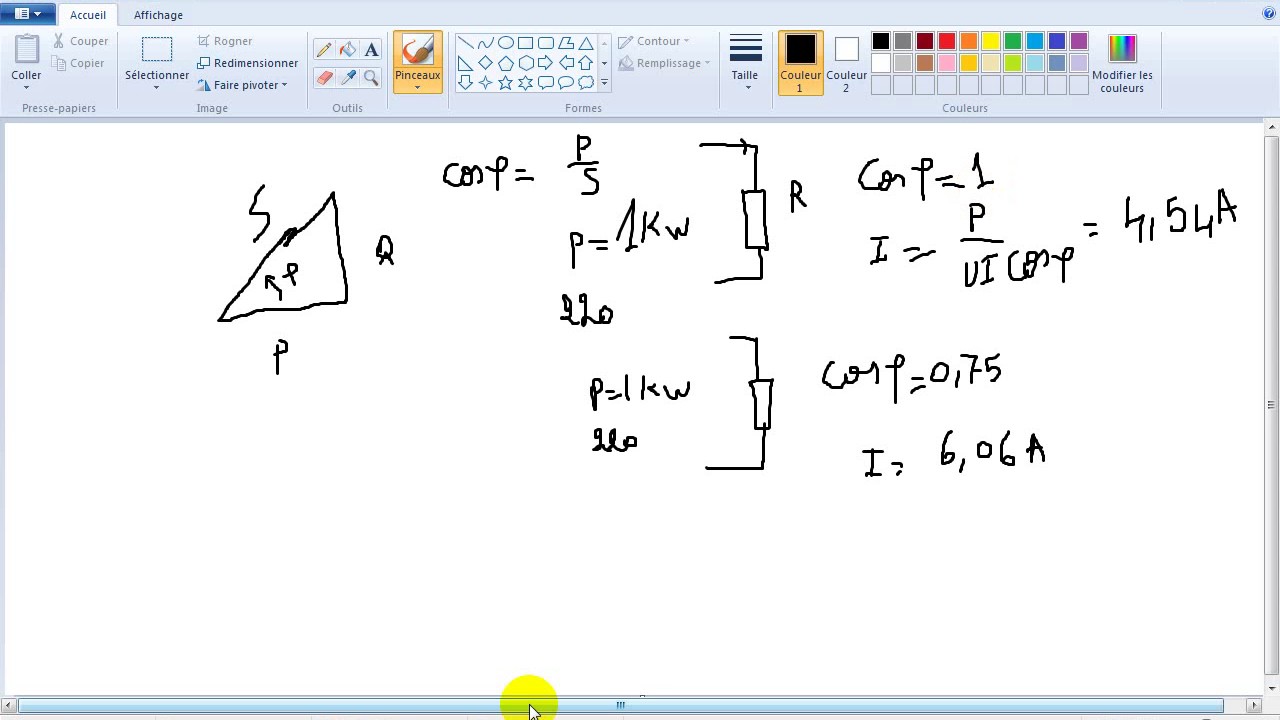 Accueil
Affichage
Coller
Couper
Copier
Presse-papiers
Sélectionner
Rogner
Redimensionner
Faire pivoter
Image
Outils
Pinceaux
Contour
Remplissage
Formes
Taille
Couleur 1
Couleur 2
Modifier les couleurs
Couleurs
S
φ
Q
P
cosφ = P/S
P = 1 kw
220
R
Cosφ = 1
I = P/UI Cosφ = 4,54A
P = 1 kw
220
cosφ = 0,75
I = 6,06 A